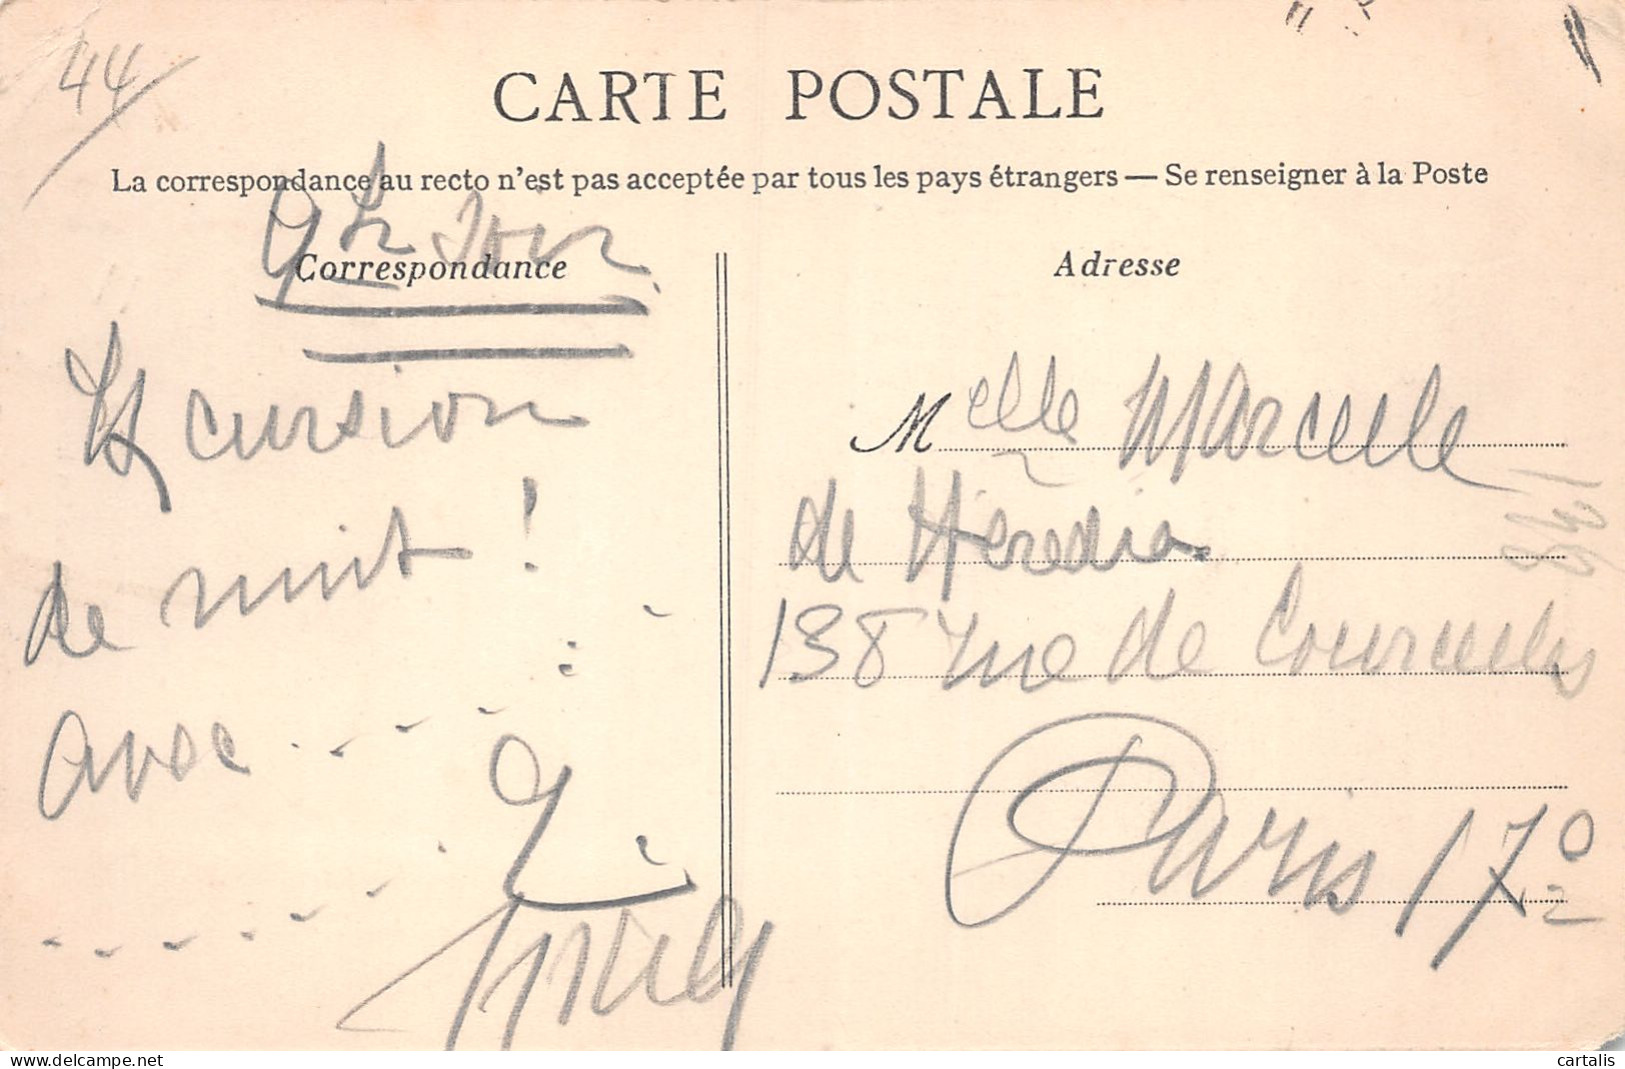 44
CARTE POSTALE
La correspondance au recto n'est pas acceptée par tous les pays étrangers — Se renseigner à la Poste
9h soir
Correspondance
Excursion
de nuit !
avec
Adresse
Melle Marcelle
de Hérédia
138 rue de Courcelles
Paris 17e
138
delcampe.net
cartalis